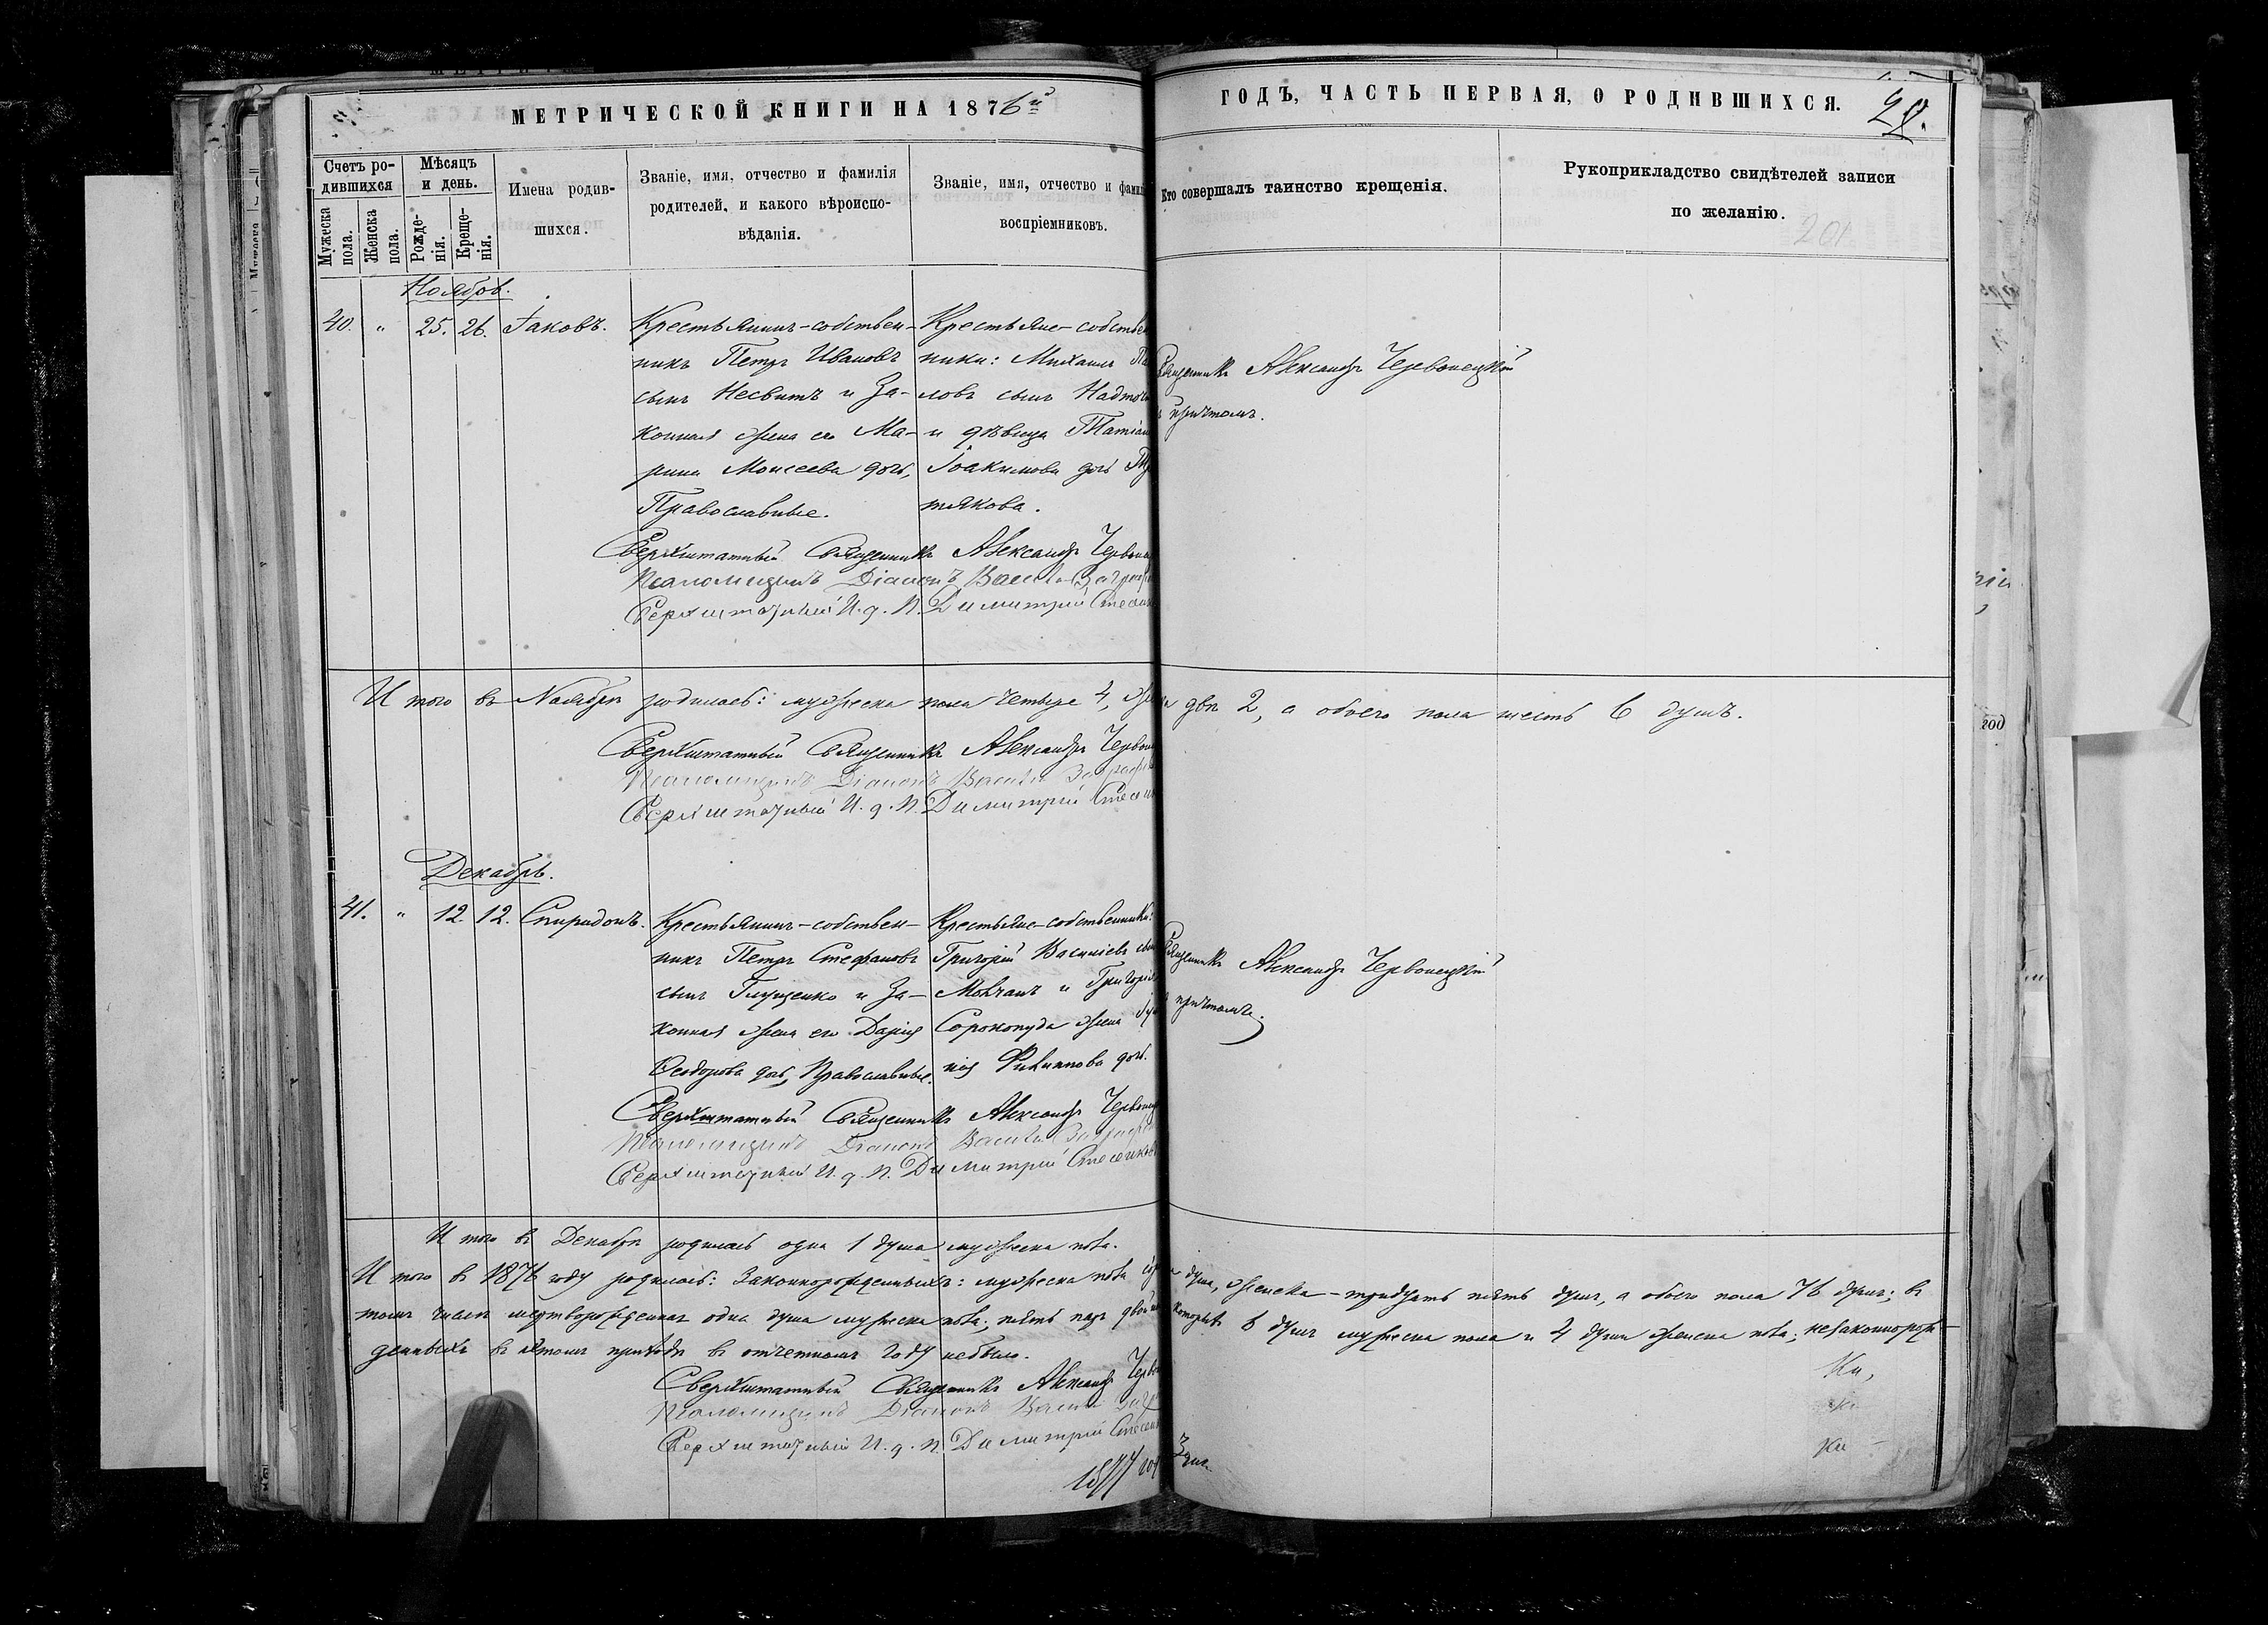 МЕТРИЧЕСКОЙ КНИГИ НА 1876й
ГОДЪ, ЧАСТЬ ПЕРВАЯ, О РОДИВШИХСЯ.
Счетъ ро-
дившихся
Мужеска
пола.
Женска
пола.
Мѣсяцъ
и день.
Рожде-
нія.
Креще-
нія.
Имена родив-
шихся.
Званіе, имя, отчество и фамилія
родителей, и какого вѣроиспо-
вѣданія.
Званіе, имя, отчество и фамилія
воспріемниковъ.
Кто совершалъ таинство крещенія.
Рукоприкладство свидѣтелей записи
по желанію.
201
Ноябрь.
40. " 25. 26. Іаковъ.
Крестьянинъ-собствен-
никъ Петръ Ивановъ
сынъ Несвитъ и За-
конная жена его Ма-
рина Моисеева дочь,
Православные.
Крестьяне-собствен
ники: Михаилъ
ловъ сынъ Надточ
и дѣвица Татіан
Іоакимова дочь
тякова.
Священникъ Александръ Червонецкій
съ причтомъ.
Сверхштатный Священникъ Александръ Червонец
Псаломщикъ Діаконъ Василій
Сверхштатный И. д. П. Димитрій
И того въ Ноябрѣ родилось: мужеска пола четыре 4, женска двѣ 2, а обоего пола шесть 6 душъ.
Сверхштатный Священникъ Александръ Червонец
Псаломщикъ Діаконъ Василій
Сверхштатный И. д. П. Димитрій
Декабрь.
41. " 12. 12. Спиридонъ.
Крестьянинъ-собствен-
никъ Петръ Стефановъ
сынъ Глущенко и За-
конная жена его Дарія
Ѳеодорова дочь, Православные.
Крестьяне-собственники:
Григорій Васильевъ сынъ
Мовчанъ и Григорія
Сорокопуда жена
нія Филиппова дочь.
Священникъ Александръ Червонецкій
съ причтомъ.
Сверхштатный Священникъ Александръ Червонец
Псаломщикъ Діаконъ Василій
Сверхштатный И. д. П. Димитрій
И того въ Декабрѣ родилась одна 1 душа мужеска пола.
И того въ 1876 году родилось: Законнорожденныхъ: мужеска пола душа, женска - тридцать пять душъ, а обоего пола 76 душъ; въ
томъ числѣ мертворожденная одна душа мужеска пола; пять паръ которыхъ 6 душъ мужеска пола и 4 души женска пола; незаконнорож-
денныхъ въ этомъ приходѣ въ отчетномъ году небыло.
Сверхштатный Священникъ Александръ
Псаломщикъ Діаконъ Василій
Сверхштатный И. д. П. Димитрій
1877